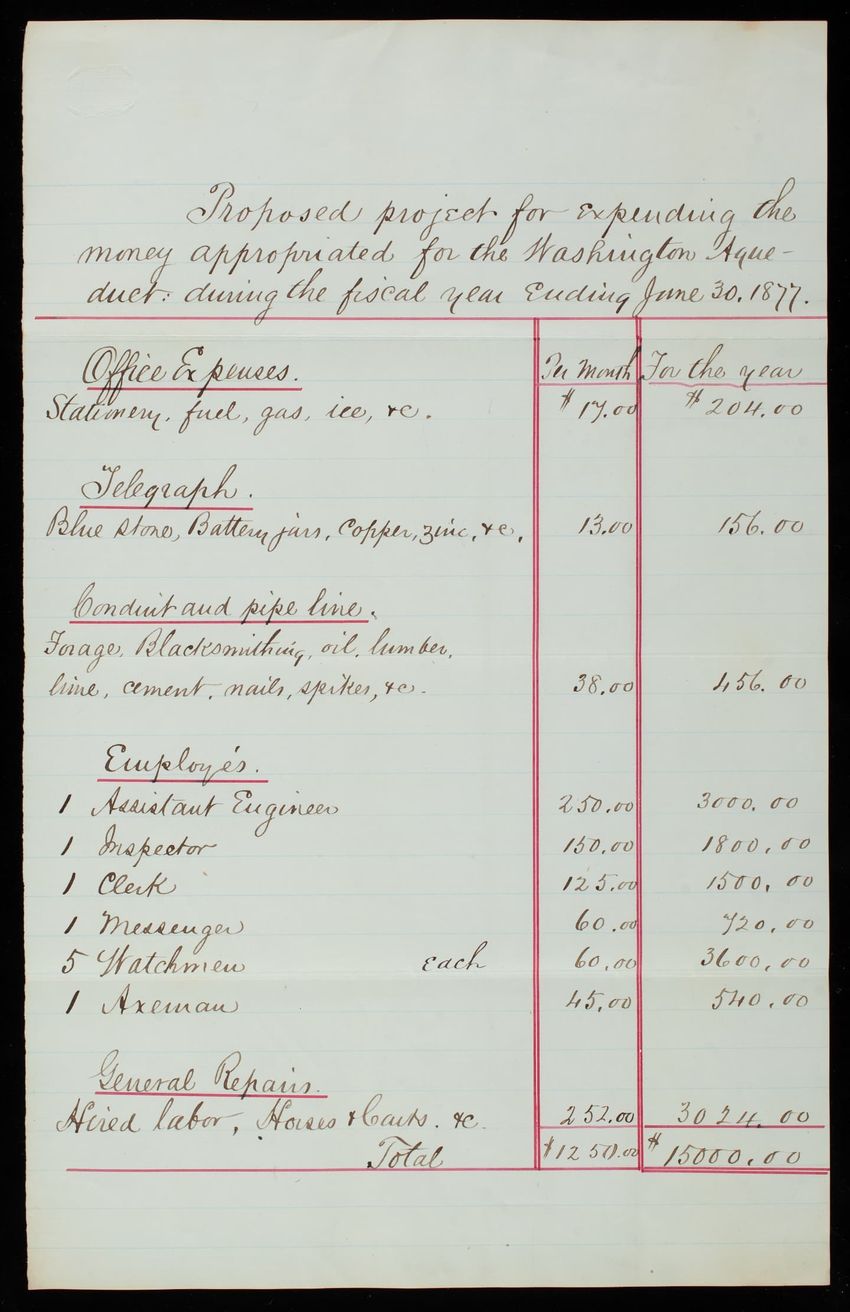 Proposed project for expending the
money appropriated for the Washington Aque-
duct: during the fiscal year Ending June 30. 1877.
Office Expenses. Per Month For the year
Stationery, fuel, gas, ice, &c. $17.00 $204.00
Telegraph.
Blue stone, Battery jars, Copper, zinc, &c. 13.00 156.00
Conduit and pipe line.
Forage, Blacksmithing, oil, lumber,
lime, cement, nails, spikes, &c. 38.00 456.00
Employés.
1 Assistant Engineer 250.00 3000.00
1 Inspector 150.00 1800.00
1 Clerk 125.00 1500.00
1 Messenger 60.00 720.00
5 Watchmen Each 60.00 3600.00
1 Axeman 45.00 540.00
General Repairs.
Hired labor, Horses & Carts. &c. 252.00 3024.00
Total $1250.00 $15000.00